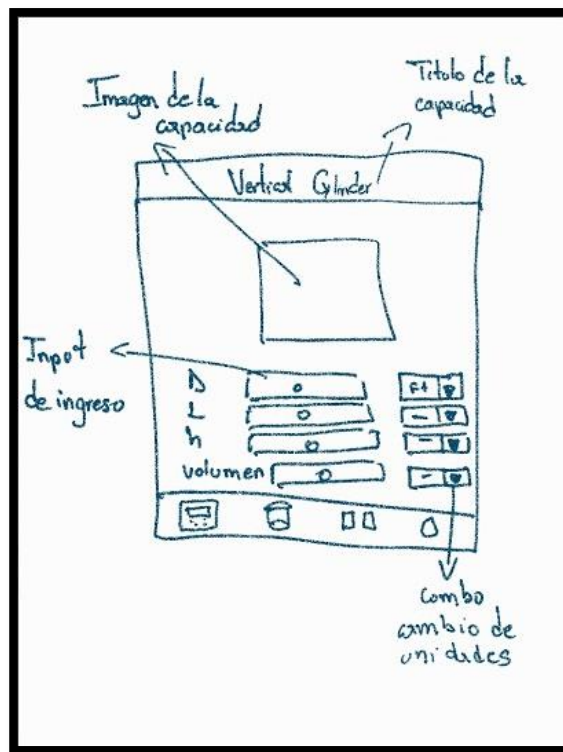 Imagen de la
capacidad
Titulo de la
capacidad
Vertical Cylinder
Input
de ingreso
D
0
ft
L
0
-
h
0
-
volumen
0
-
combo
cambio de
unidades